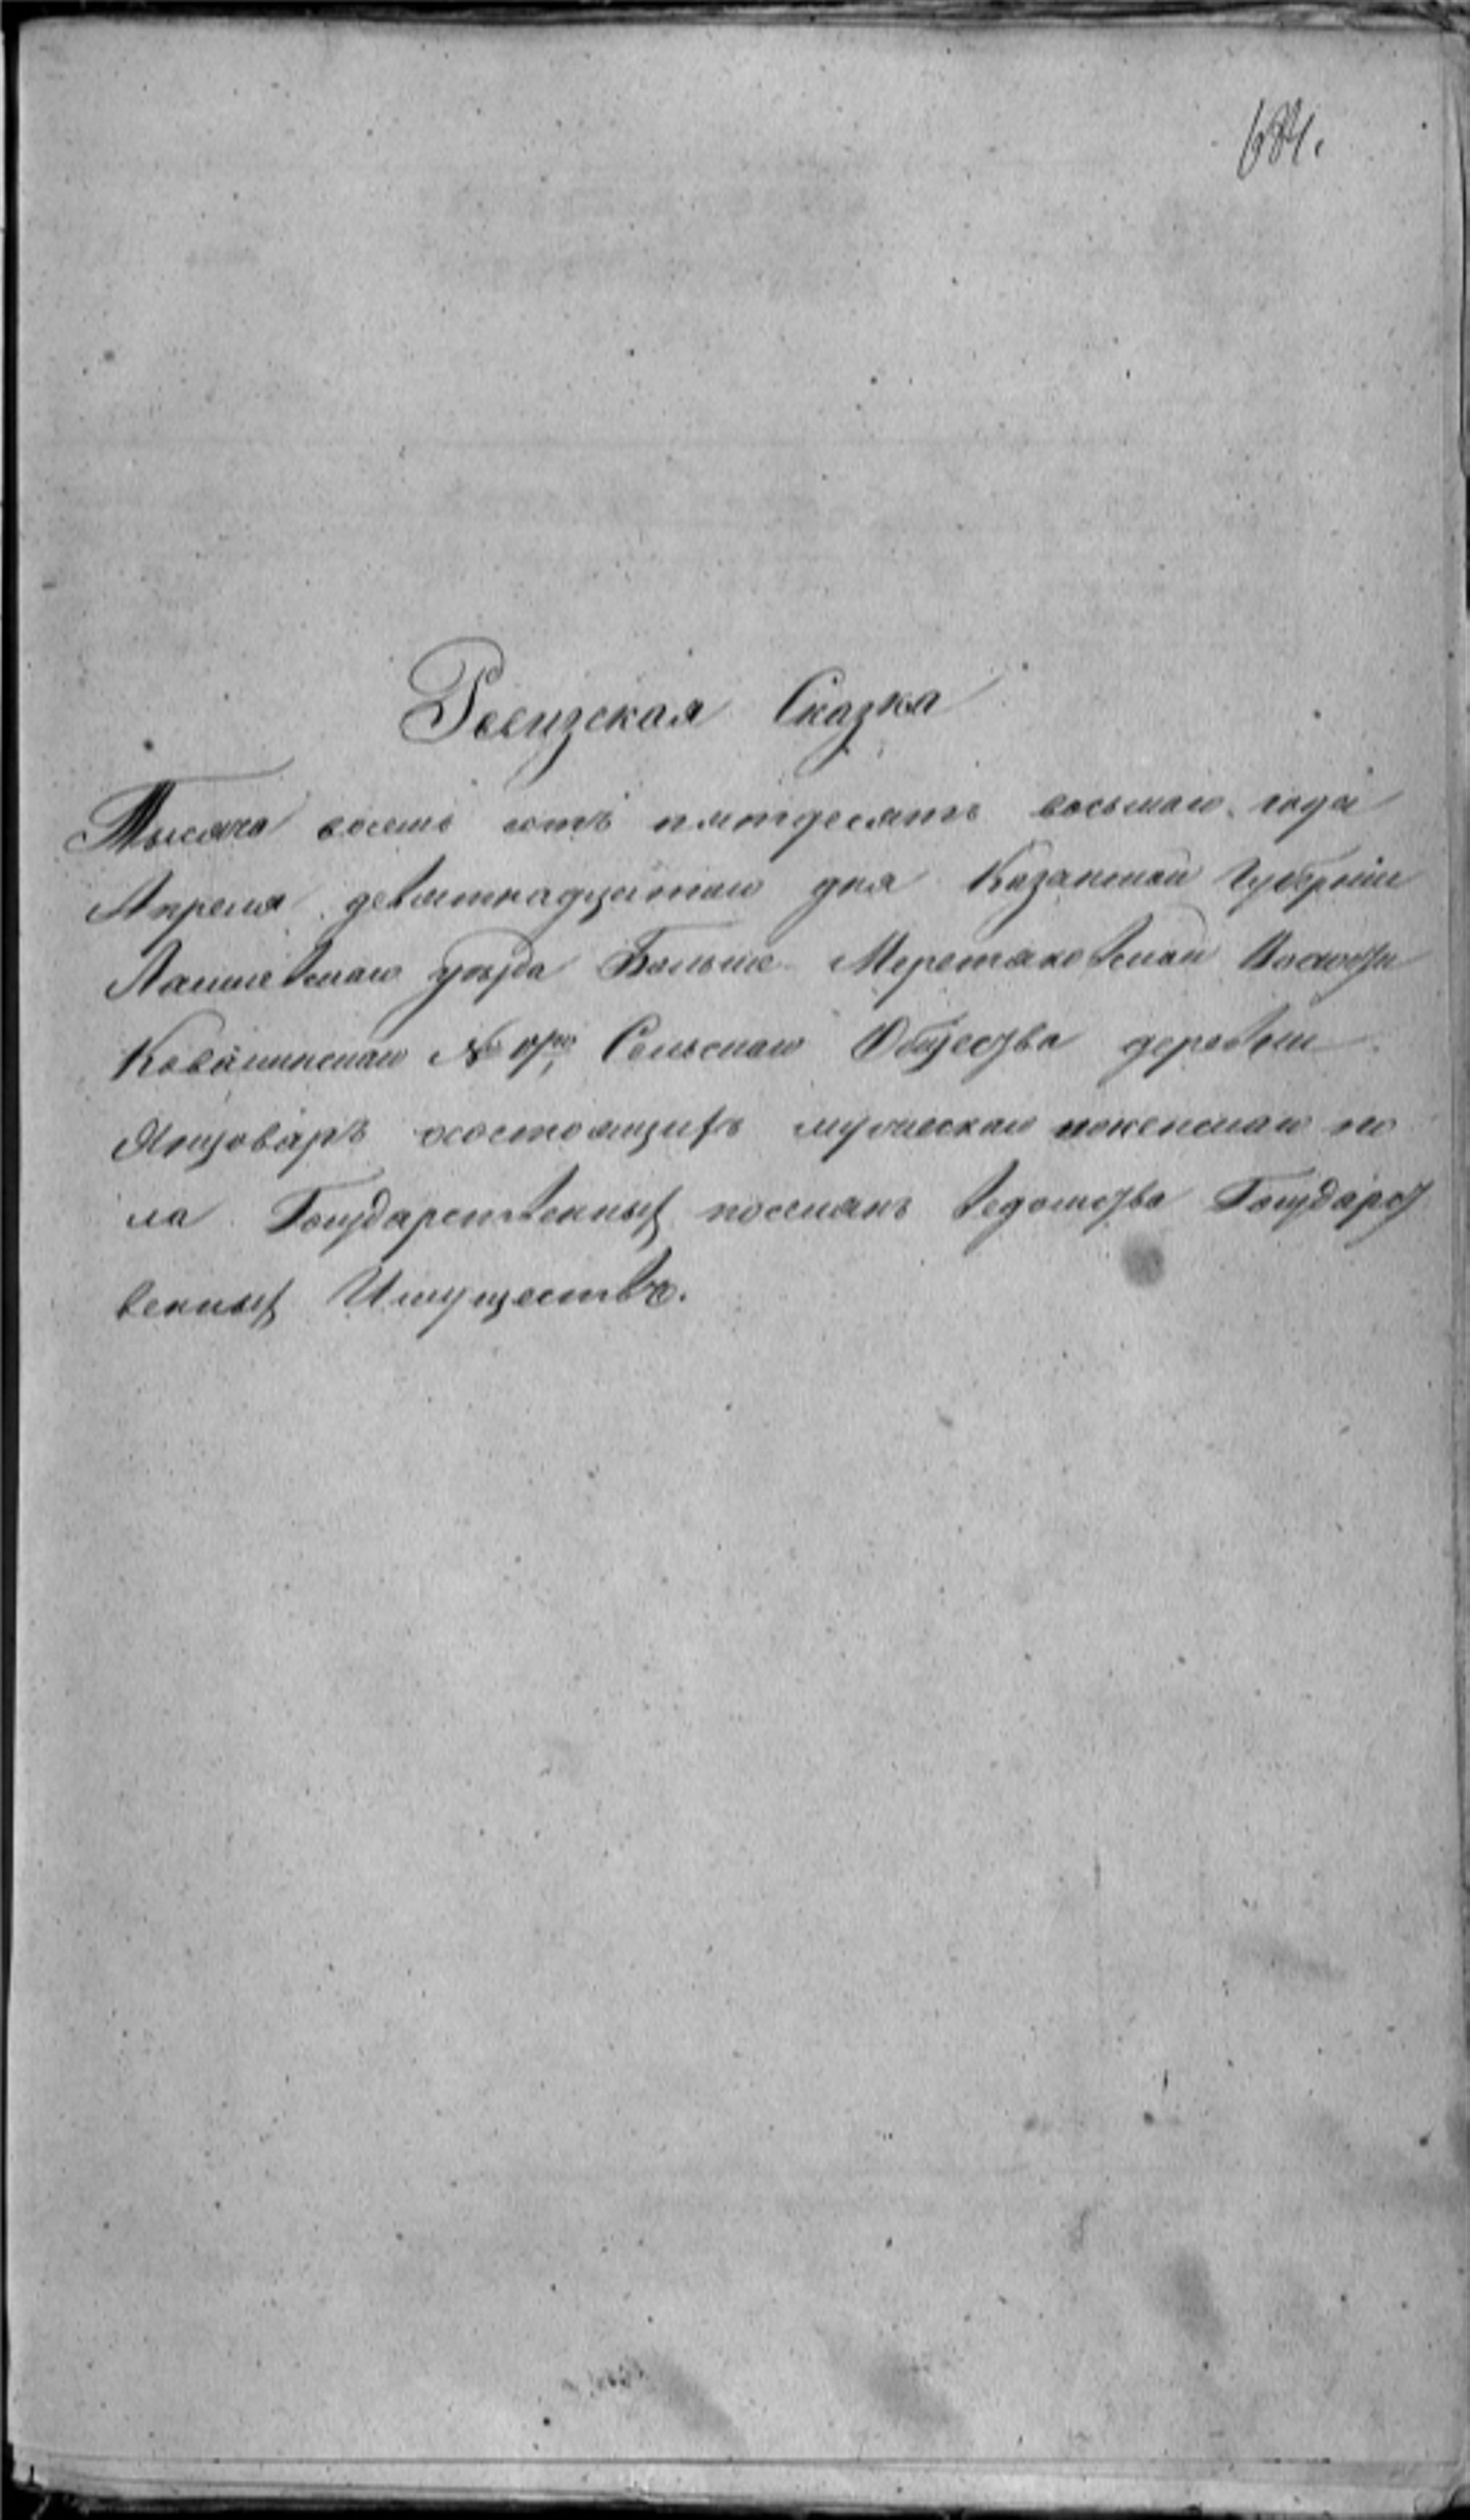 Ревизская Сказка
Тысяча восемь сотъ пятьдесятъ восьмаго года
Апреля девятнадцатаго дня Казанской Губерніи
Лаишевскаго уѣзда Больше Меретяковской Волости
Ковалинскаго № Сельскаго Общества деревни
Янцоваръ о состоящихъ мужескаго и женскаго по
ла Государственныхъ поселянъ Ведомства Государст
венныхъ Имуществъ.